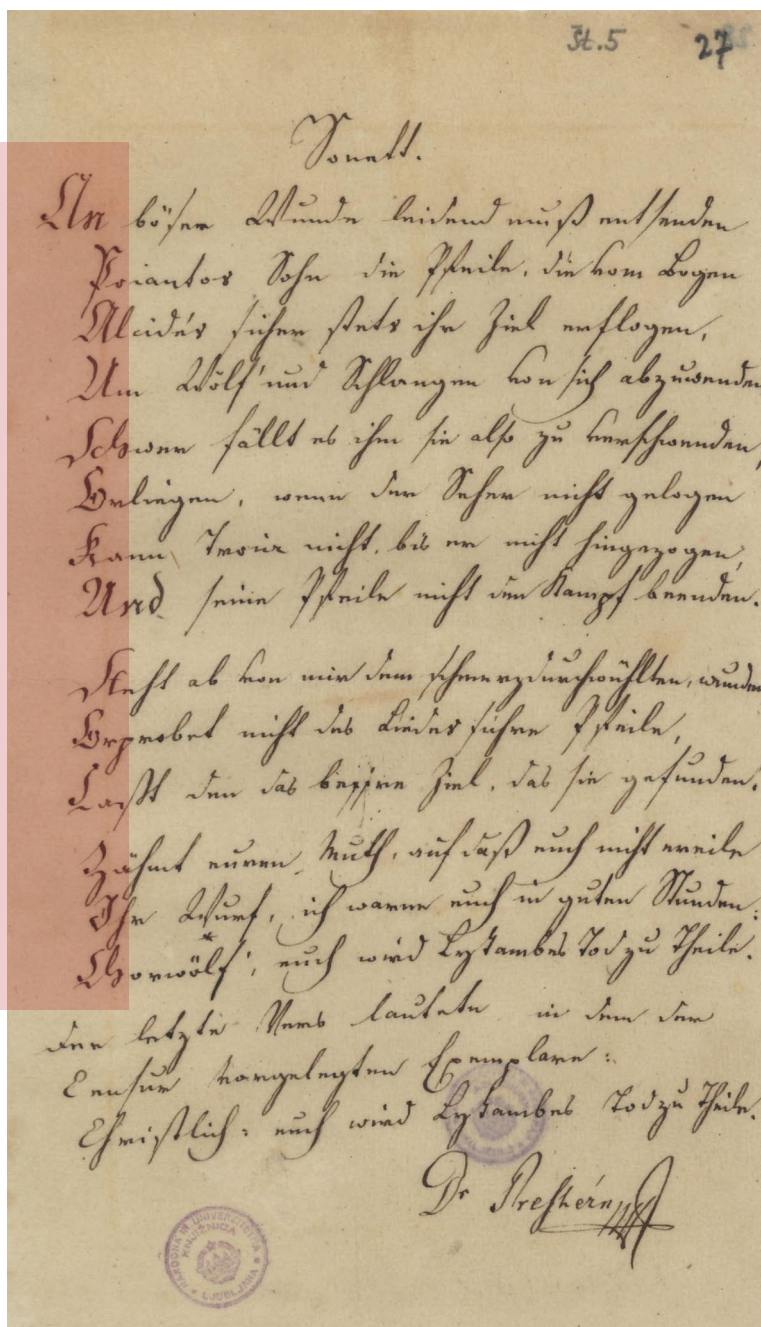 Št. 5 27
Sonett.
An böser Wunde leidend muß entsenden
Poiantos Sohn die Pfeile, die vom Bogen
Alcidés sicher stets ihr Ziel erflogen,
Um Wölf' und Schlangen von sich abzuwenden
Schwer fällt es ihm sie also zu verschwenden,
Erliegen, wenn der Seher nicht gelogen
Kann Troia nicht, bis er nicht hingezogen,
Und seine Pfeile nicht den Kampf beenden.
Steht ab von mir dem schmerzdurchwühlten, wunden
Erprobet nicht des Liedes sichre Pfeile,
Laßt den das bessre Ziel, das sie gefunden.
Zähmt euren Muth, auf daß euch nicht ereile
Ihr Wurf, ich warne euch in guten Stunden:
Chorwölf', euch wird Lykambes Tod zu Theile.
Der letzte Vers lautete in dem der
Censur vorgelegten Exemplare:
Christlich: euch wird Lykambes Tod zu Theile.
Dr Preshérn
NARODNA IN UNIVERZITETNA
KNJIŽNICA
LJUBLJANA